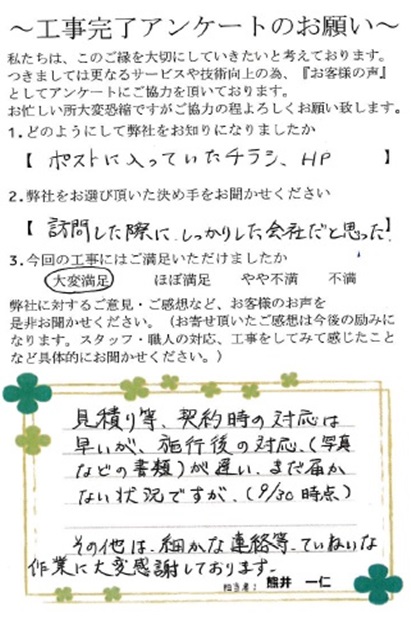 ～工事完了アンケートのお願い～
私たちは、このご縁を大切にしていきたいと考えております。
つきましては更なるサービスや技術向上の為、『お客様の声』
としてアンケートにご協力を頂いております。
お忙しい所大変恐縮ですがご協力の程よろしくお願い致します。
1.どのようにして弊社をお知りになりましたか
【 ポストに入っていたチラシ、HP 】
2.弊社をお選び頂いた決め手をお聞かせください
【 訪問した際に、しっかりした会社だと思った 】
3.今回の工事にはご満足いただけましたか
大変満足 ほぼ満足 やや不満 不満
弊社に対するご意見・ご感想など、お客様のお声を
是非お聞かせください。（お寄せ頂いたご感想は今後の励みに
なります。スタッフ・職人の対応、工事をしてみて感じたこと
など具体的にお聞かせください。）
見積り等、契約時の対応は
早いが、施行後の対応、（写真
などの書類）が遅い、まだ届か
ない状況ですが、（9/30時点）
その他は、細かな連絡等、ていねいな
作業に大変感謝しております。
担当者： 熊井 一仁